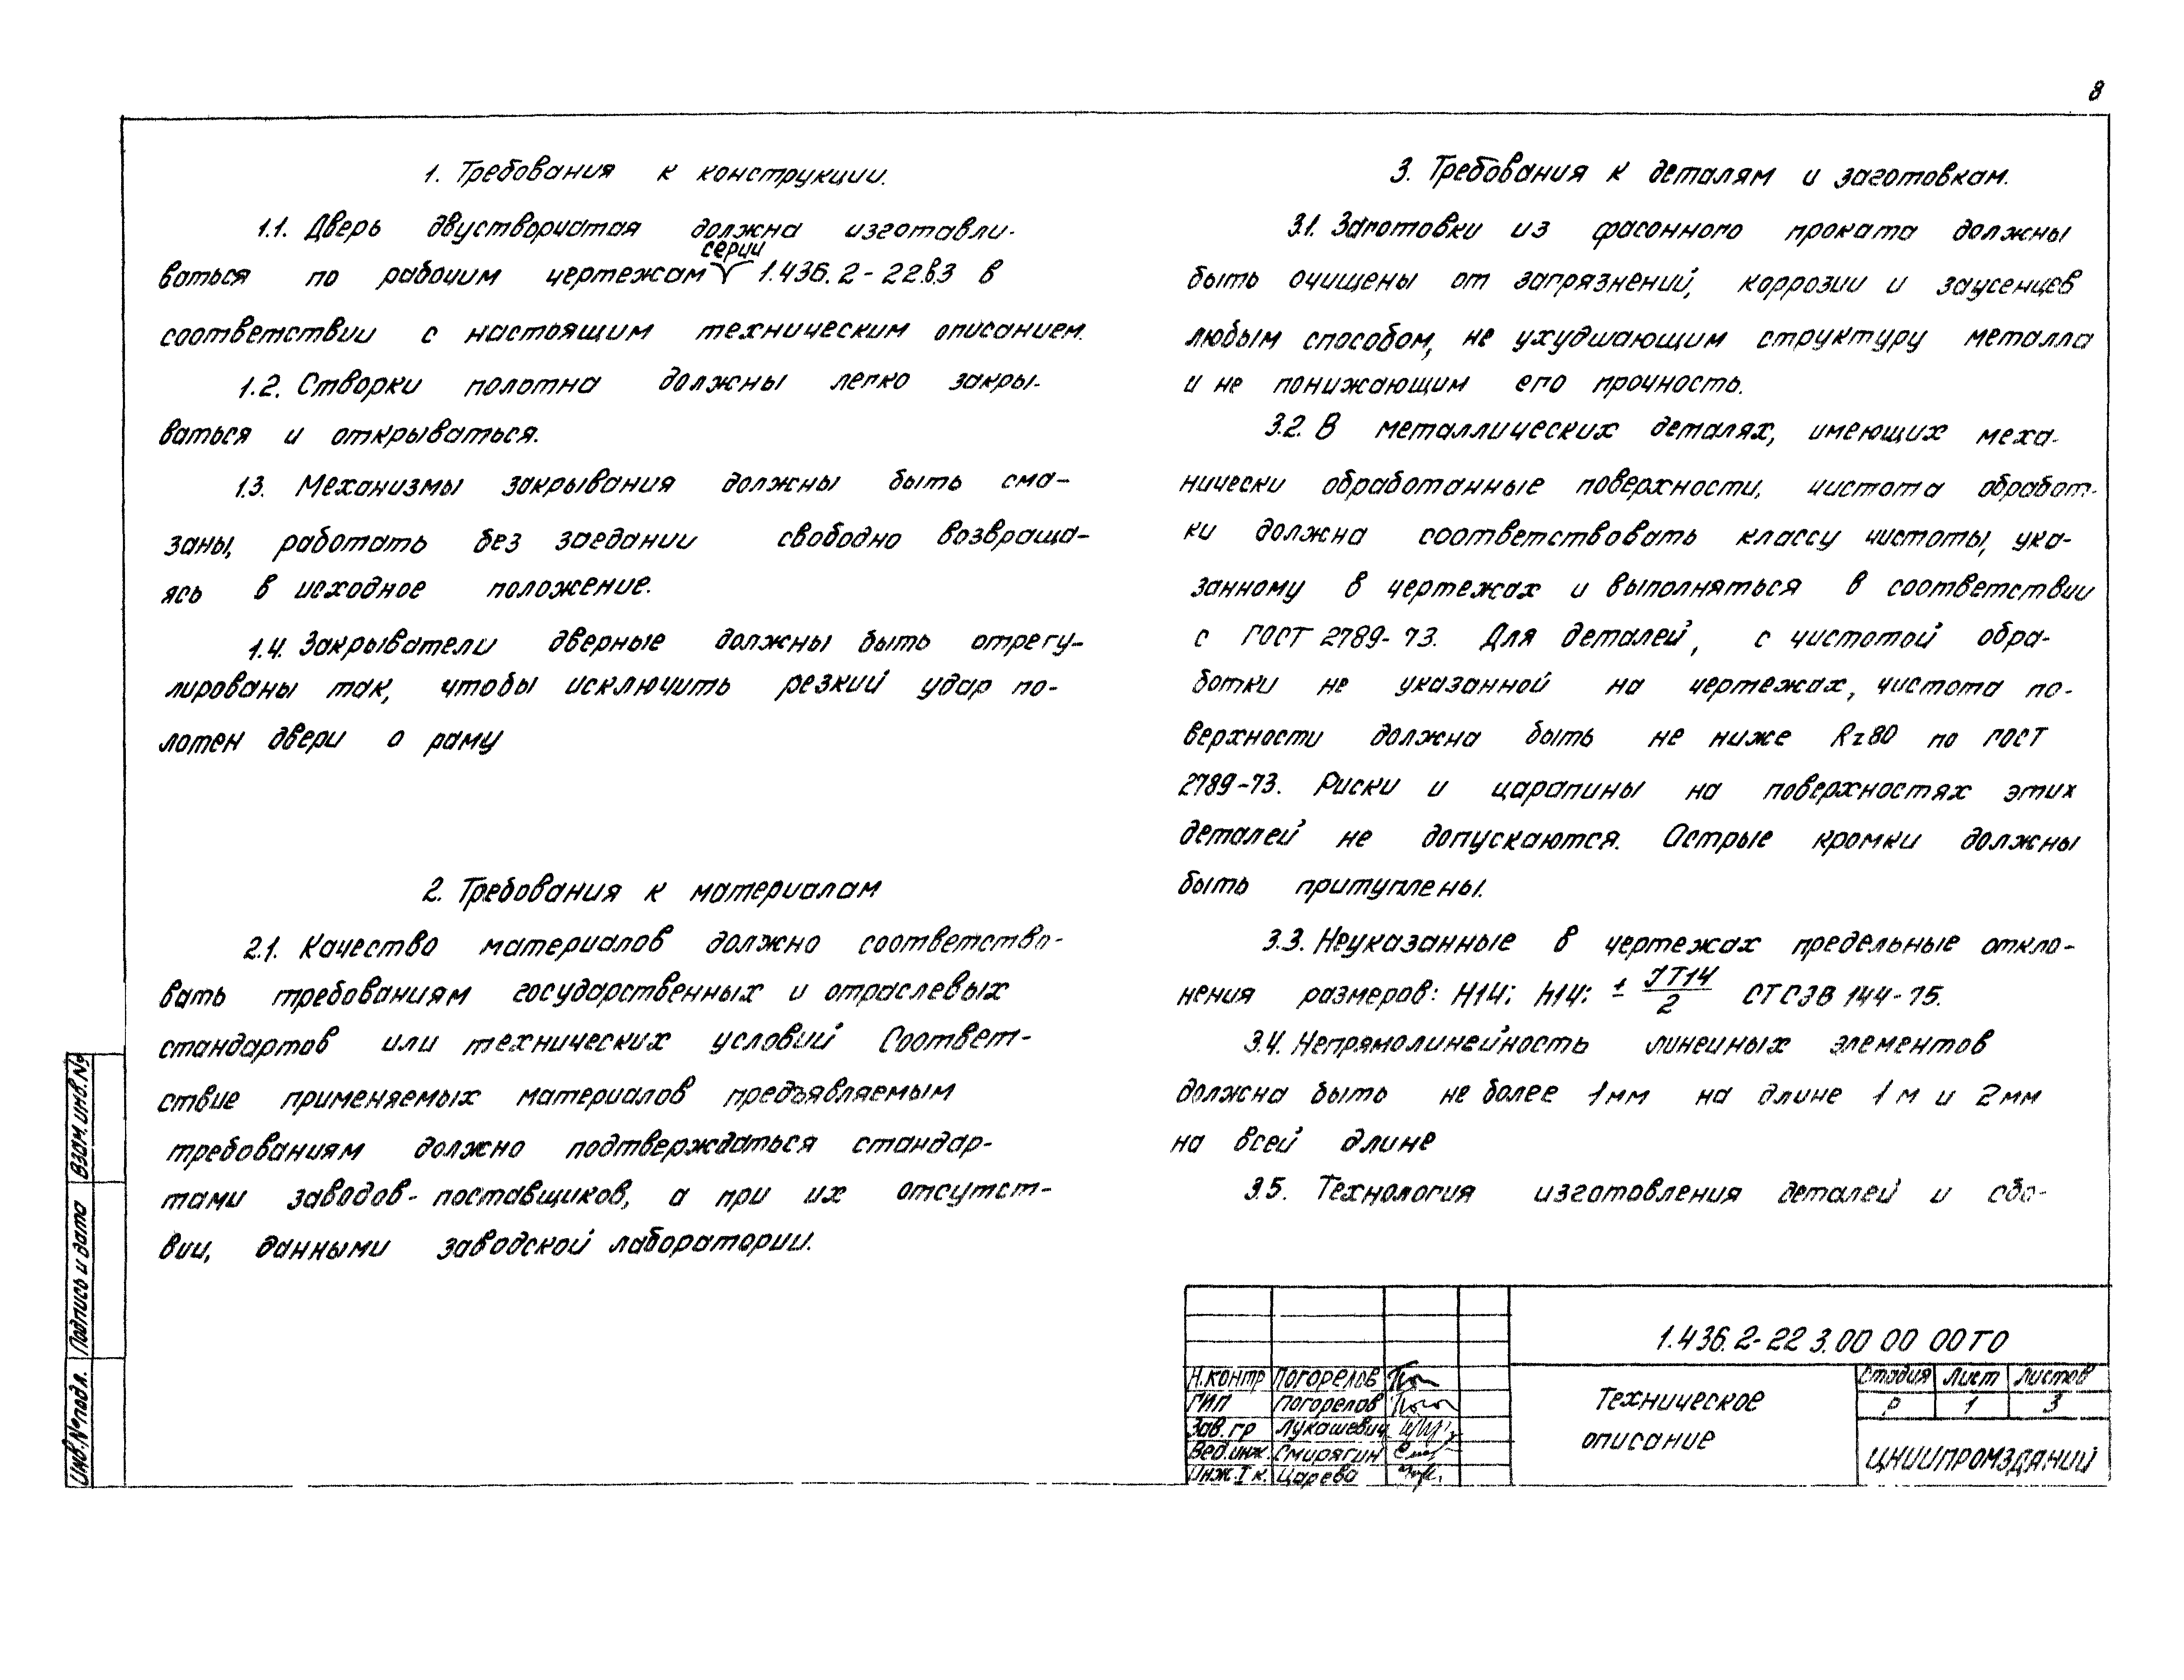 8
1. Требования к конструкции.
1.1. Дверь двустворчатая должна изготавли-
серии
ваться по рабочим чертежам 1.436.2-22.в.3 в
соответствии с настоящим техническим описанием.
1.2. Створки полотна должны легко закры-
ваться и открываться.
1.3. Механизмы закрывания должны быть сма-
заны, работать без заедании свободно возвраща-
ясь в исходное положение.
1.4. Закрыватели дверные должны быть отрегу-
лированы так, чтобы исключить резкий удар по-
лотен двери о раму
2. Требования к материалам
2.1. Качество материалов должно соответство-
вать требованиям государственных и отраслевых
стандартов или технических условий Соответ-
ствие применяемых материалов предъявляемым
требованиям должно подтверждаться стандар-
тами заводов-поставщиков, а при их отсутст-
вии, данными заводской лаборатории.
3. Требования к деталям и заготовкам.
3.1. Заготовки из фасонного проката должны
быть очищены от загрязнений, коррозии и заусенцев
любым способом, не ухудшающим структуру металла
и не понижающим его прочность.
3.2. В металлических деталях, имеющих меха-
нически обработанные поверхности, чистота обработ-
ки должна соответствовать классу чистоты, ука-
занному в чертежах и выполняться в соответствии
с ГОСТ 2789-73. Для деталей, с чистотой обра-
ботки не указанной на чертежах, чистота по-
верхности должна быть не ниже Rz80 по ГОСТ
2789-73. Риски и царапины на поверхностях этих
деталей не допускаются. Острые кромки должны
быть притуплены.
3.3. Неуказанные в чертежах предельные откло-
нения размеров: H14; h14; ± JT14/2 СТ СЭВ 144-75.
3.4. Непрямолинейность линейных элементов
должна быть не более 1мм на длине 1 м и 2мм
на всей длине
3.5. Технология изготовления деталей и сбо-
Взам.инв.№
Подпись и дата
Инв.№подл.
1.436.2-22 3.00 00 00ТО
Н.контр Погорелов
ГИП Погорелов
Зав.гр Лукашевич
Вед.инж. Смирягин
Инж.I к. Царева
Техническое
описание
Стадия Лист Листов
Р 1 3
ЦНИИПРОМЗДАНИЙ